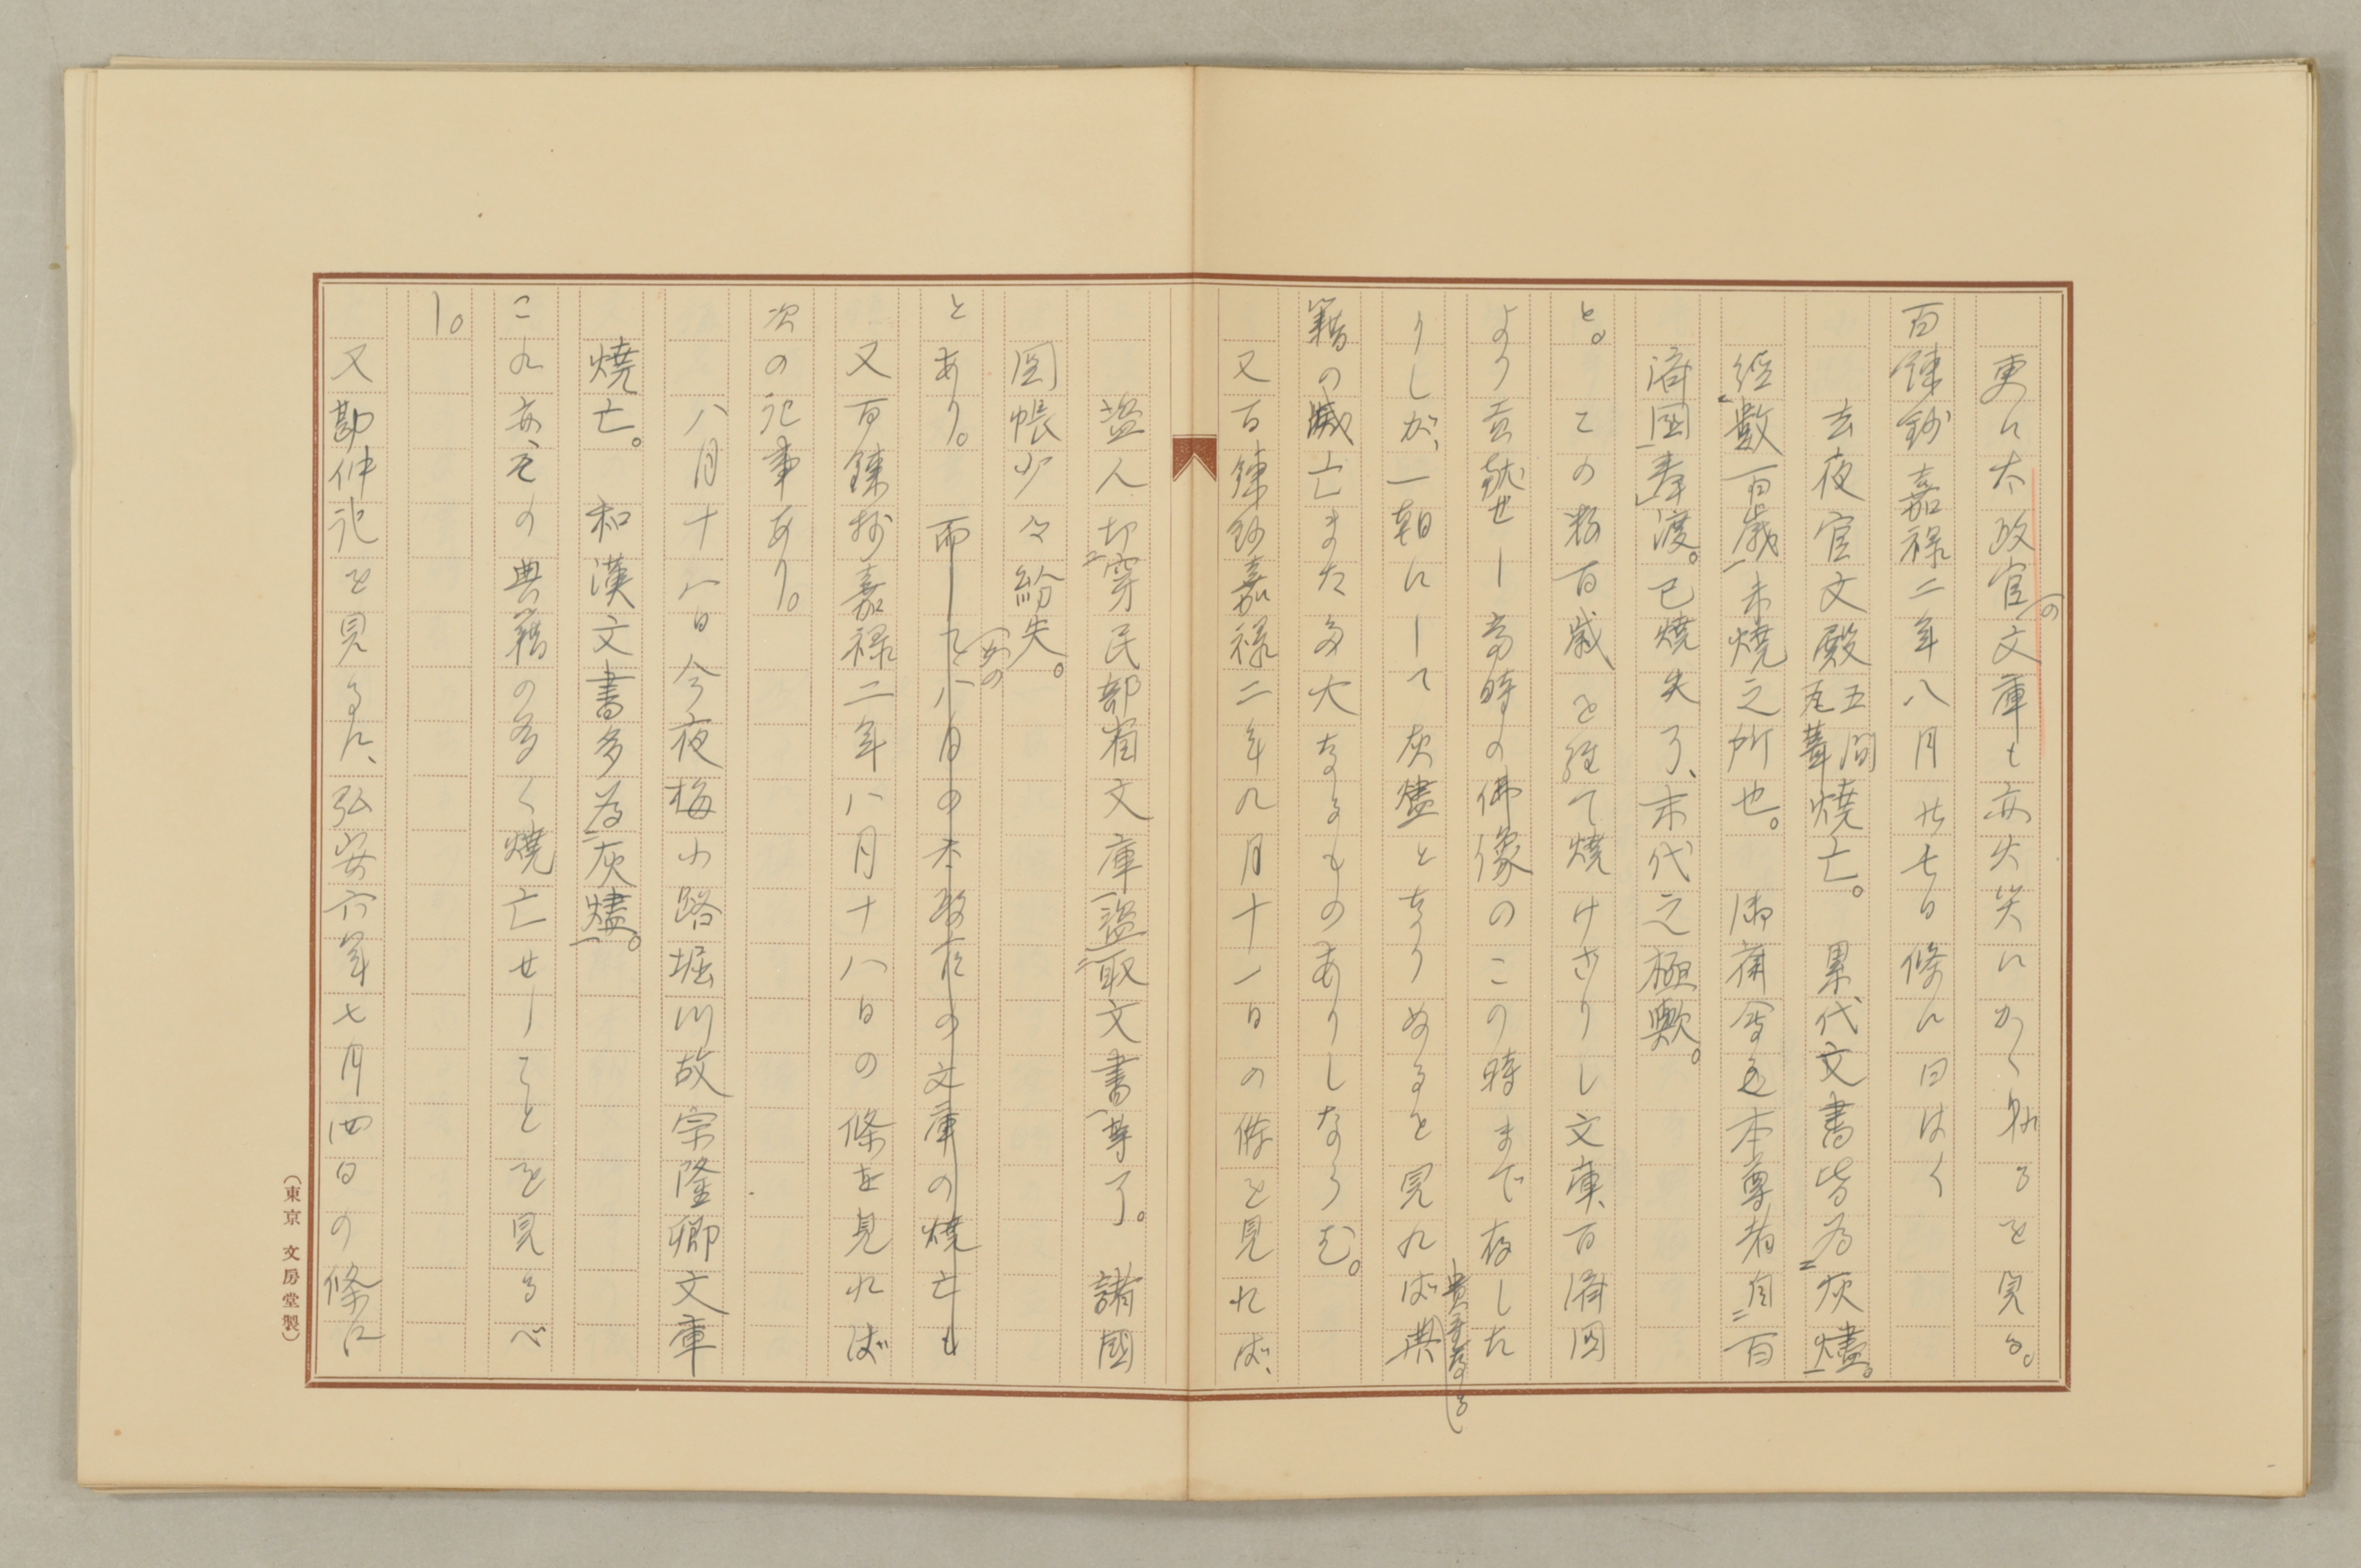 更に太政官の文庫も亦火災にかゝれるを見る。
百錬鈔嘉禄二年八月廿七日條に曰はく
去夜官文殿五間瓦葺焼亡。累代文書皆為灰燼。
經數百歳未焼之所也。
本尊者自百
済國奉渡。已焼失了、末代之極歟。
と。この数百歳を経て焼けざりし文庫、百済国
より貢献せし當時の佛像のこの時まで存した
りしが、一朝にして灰燼となりぬるを見れば貴重なる典
籍の滅亡また多大なるものありしならむ。
又百錬鈔嘉禄二年九月十一日の條を見れば、
盗人切穿民部省文庫盗取文書等了。諸國
図帳少々紛失。
とあり。而して八月の太政官の文庫の焼亡も
又百錬抄嘉禄二年八月十八日の條を見れば
次の記事あり。
八月十八日今夜梅小路堀川故宗隆卿文庫
焼亡。和漢文書多為灰燼。
これ亦、その典籍の多く焼亡せしことを見るべ
し。
又勘仲記を見るに、弘安六年七月四日の條に
（東京 文房堂製）